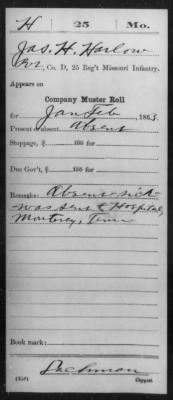 H 25 Mo.
Jas. H. Harlow
Pvt, Co. D, 25 Reg't Missouri Infantry.
Appears on
Company Muster Roll
for Jan Feb, 1863.
Present or absent Absent
Stoppage, $ 100 for
Due Gov't, $ 100 for
Remarks: Absent sick
was sent to Hospital,
Monterey, Tenn
Book mark:
(358)
Copyist.